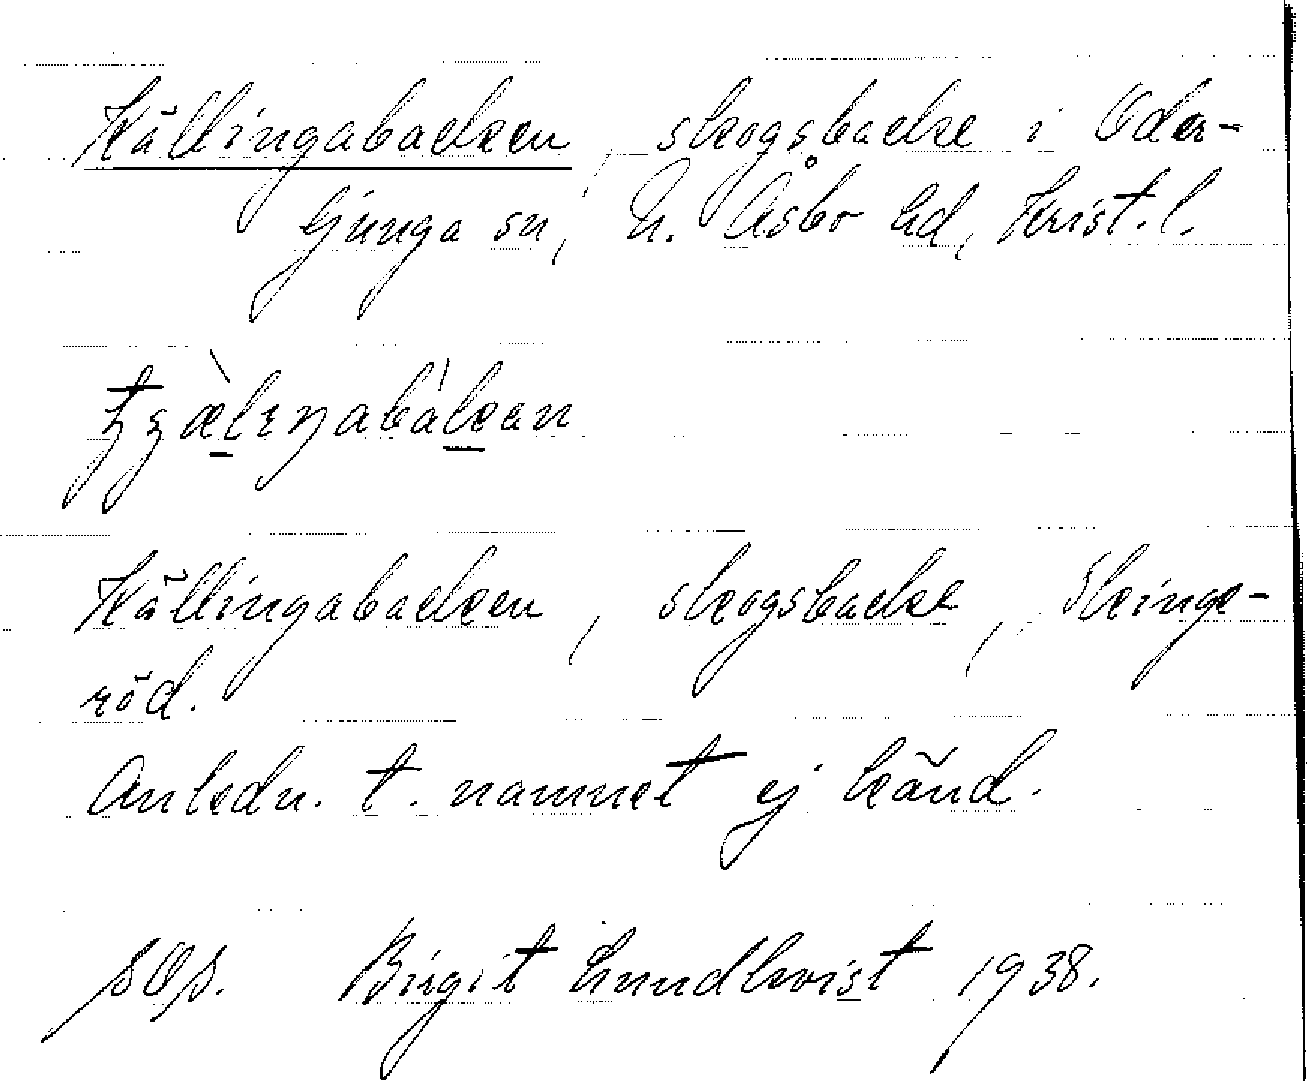 Källingabacken, skogsbacke i Oder-
ljunga sn, N. Åsbo hd, Krist. l.
Källingabacken, skogsbacke, Skinge-
röd.
Anledn. t. namnet ej känd.
Birgit Lundkvist 1938.